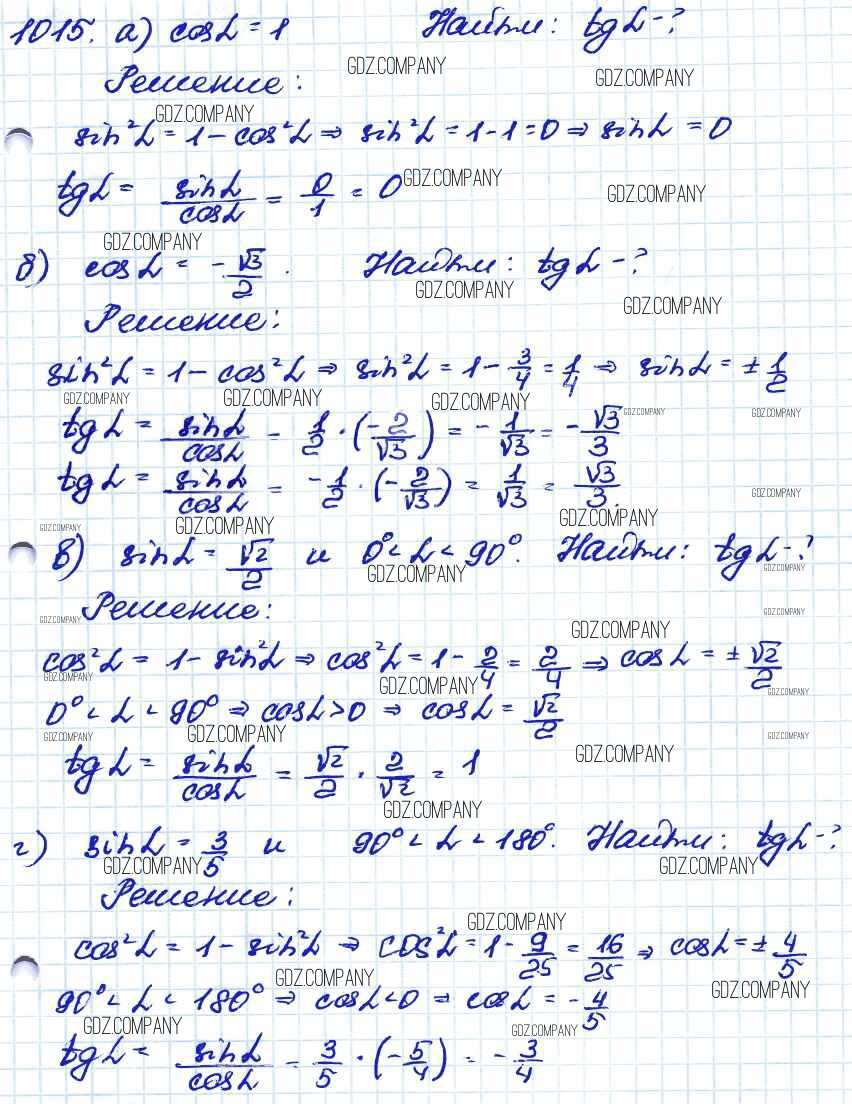 1015. а) cosα = 1 Найти: tgα - ?
GDZ.COMPANY GDZ.COMPANY
Решение:
GDZ.COMPANY
sin²α = 1 - cos²α ⇒ sin²α = 1 - 1 = 0 ⇒ sinα = 0
tgα = sinα/cosα = 0/1 = 0 GDZ.COMPANY GDZ.COMPANY
GDZ.COMPANY
б) cosα = -√3/2. Найти: tgα - ?
GDZ.COMPANY GDZ.COMPANY
Решение:
sin²α = 1 - cos²α ⇒ sin²α = 1 - 3/4 = 1/4 ⇒ sinα = ± 1/2
GDZ.COMPANY GDZ.COMPANY GDZ.COMPANY
tgα = sinα/cosα = 1/2 · (-2/√3) = -1/√3 = -√3/3 GDZ.COMPANY GDZ.COMPANY
tgα = sinα/cosα = -1/2 · (-2/√3) = 1/√3 = √3/3. GDZ.COMPANY
GDZ.COMPANY GDZ.COMPANY GDZ.COMPANY
в) sinα = √2/2 и 0° < α < 90°. Найти: tgα - ?
GDZ.COMPANY GDZ.COMPANY
Решение:
GDZ.COMPANY GDZ.COMPANY
GDZ.COMPANY
cos²α = 1 - sin²α ⇒ cos²α = 1 - 2/4 = 2/4 ⇒ cosα = ± √2/2
GDZ.COMPANY GDZ.COMPANY GDZ.COMPANY
0° < α < 90° ⇒ cosα > 0 ⇒ cosα = √2/2
GDZ.COMPANY GDZ.COMPANY GDZ.COMPANY
tgα = sinα/cosα = √2/2 · 2/√2 = 1 GDZ.COMPANY
GDZ.COMPANY
г) sinα = 3/5 и 90° < α < 180°. Найти: tgα - ?
GDZ.COMPANY GDZ.COMPANY
Решение:
GDZ.COMPANY
cos²α = 1 - sin²α ⇒ cos²α = 1 - 9/25 = 16/25 ⇒ cosα = ± 4/5
GDZ.COMPANY GDZ.COMPANY
90° < α < 180° ⇒ cosα < 0 ⇒ cosα = -4/5
GDZ.COMPANY GDZ.COMPANY
tgα = sinα/cosα = 3/5 · (-5/4) = -3/4